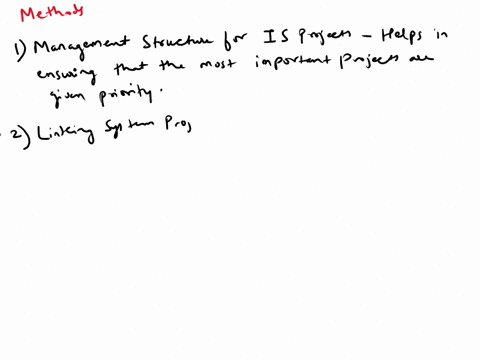 Methods
1) Management Structure for IS Projects - Helps in
ensuring that the most important Projects are
given priority.
2) Linking System Proj